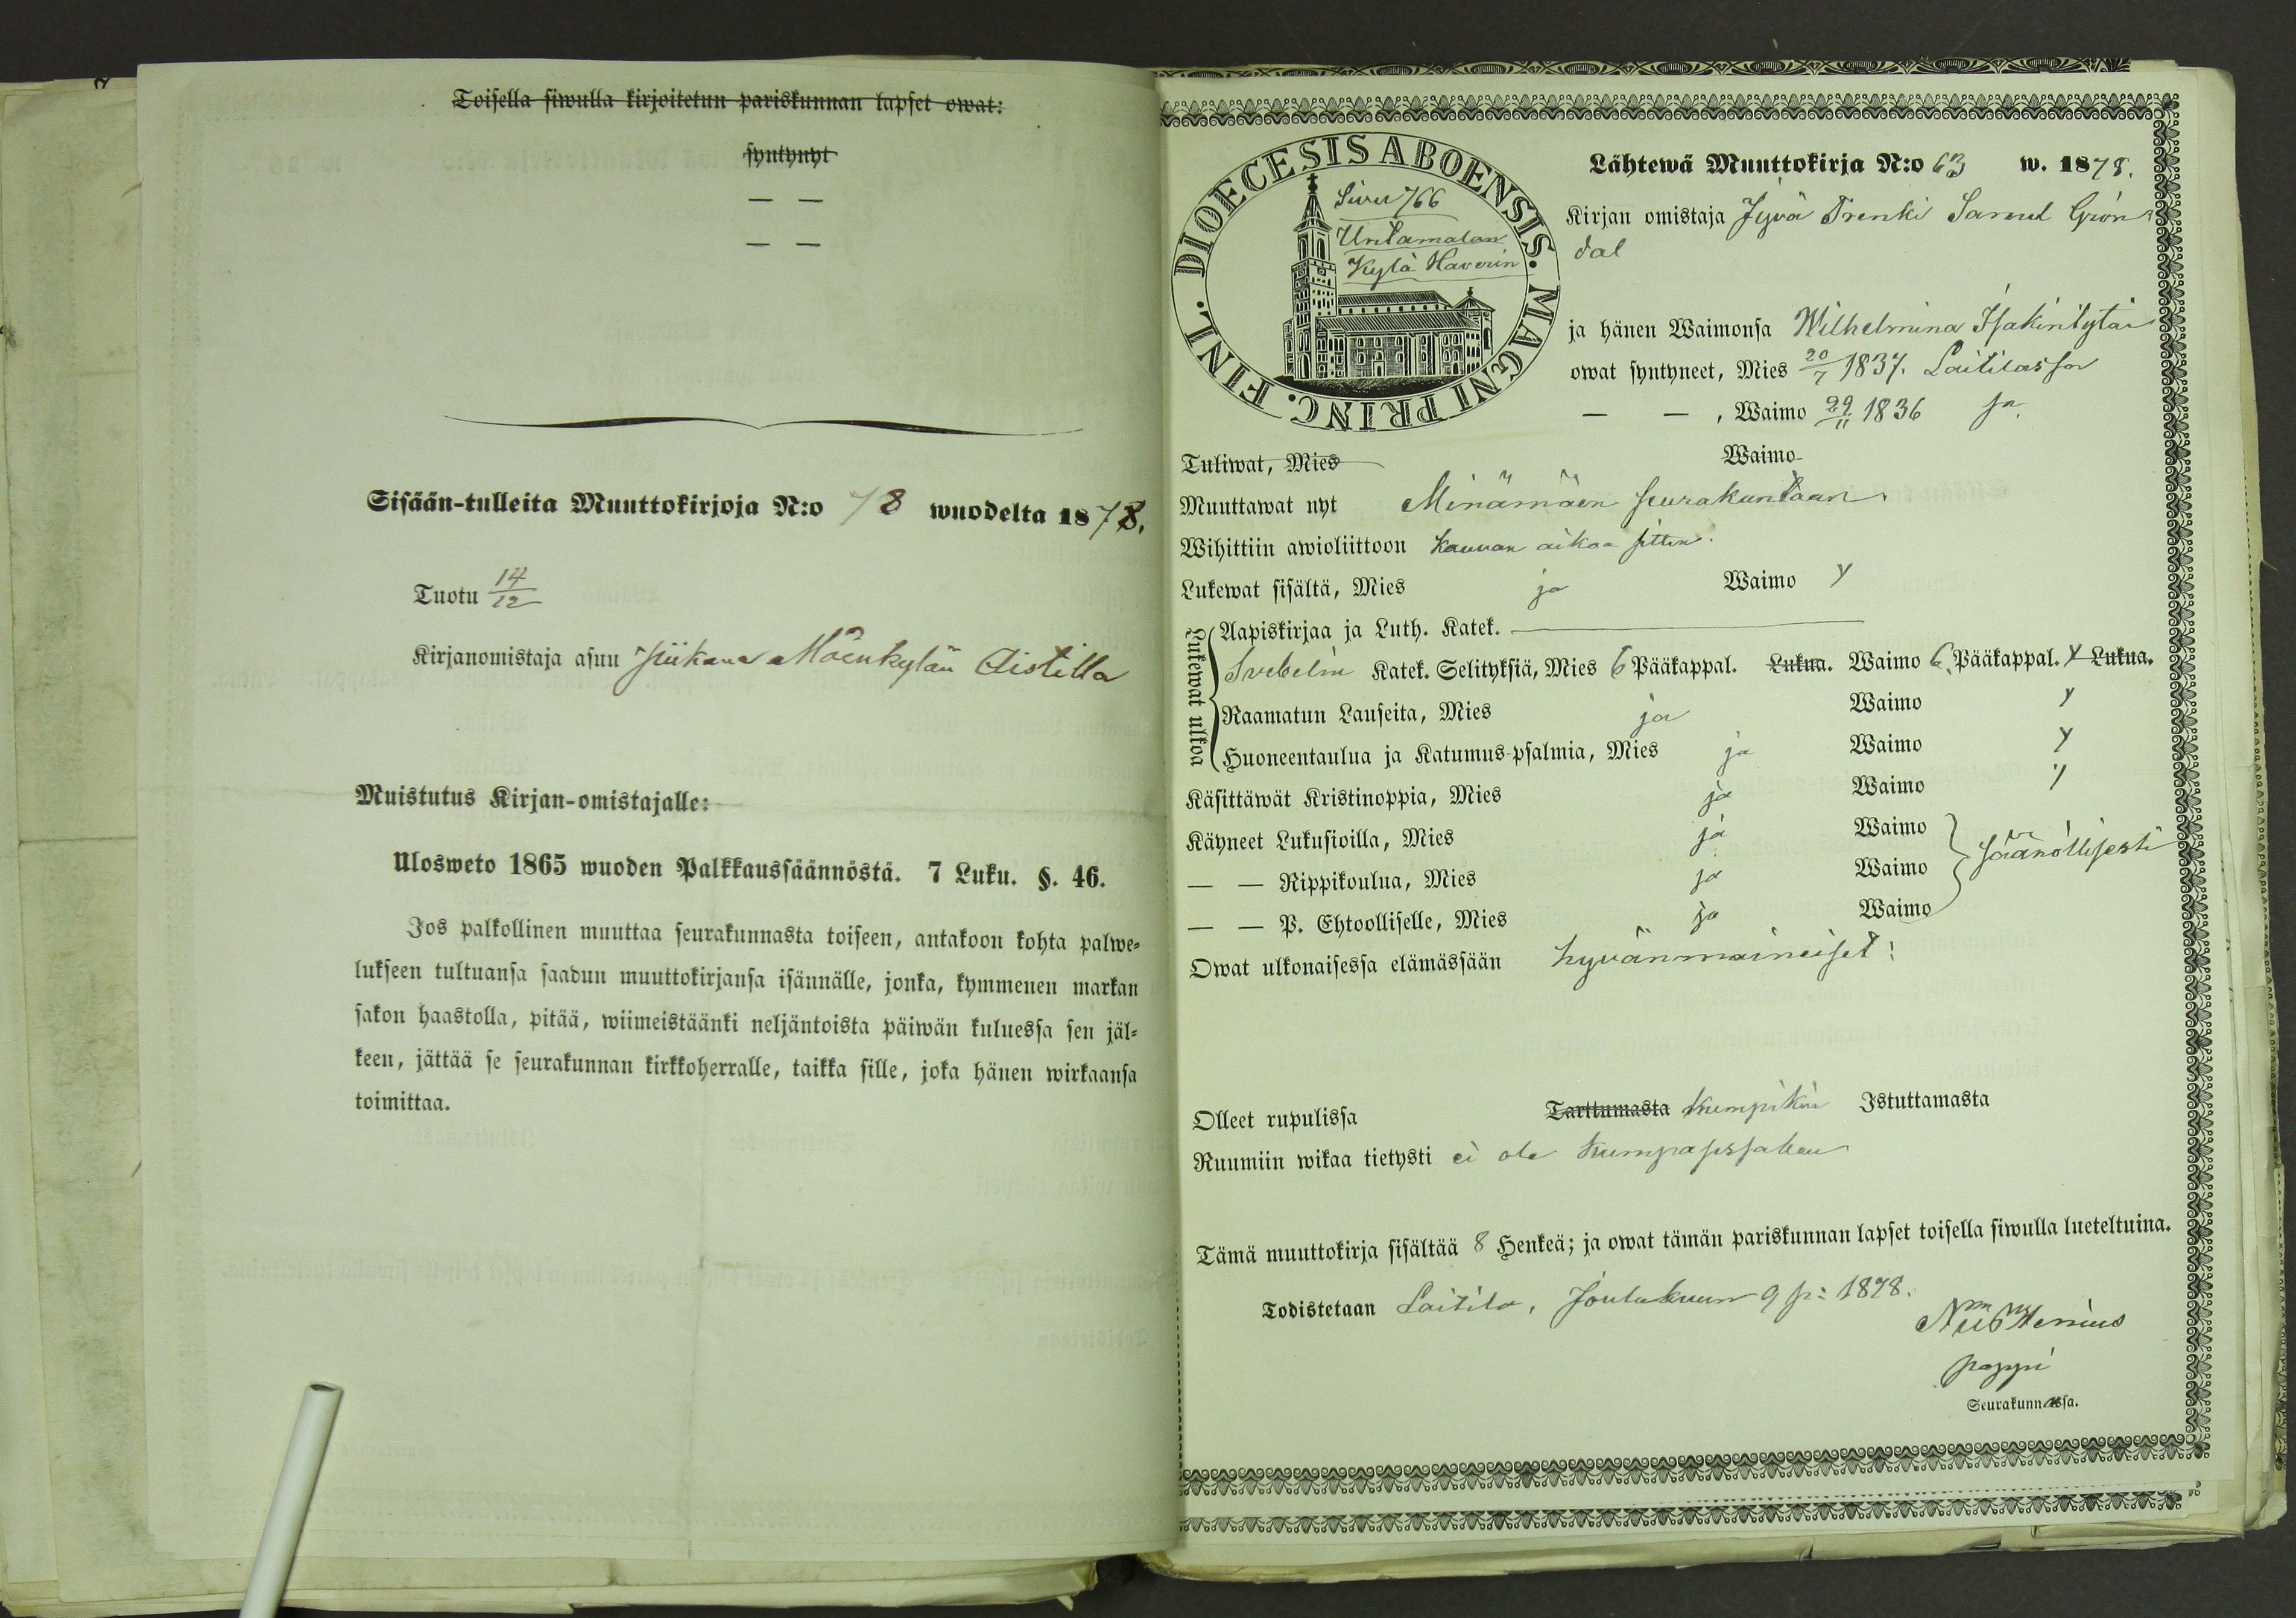 Toisella siwulla kirjoitetun pariskunnan lapset owat:
syntynyt
— —
— —
Sisään-tulleita Muuttokirjoja N:o 78 wuodelta 1878.
Tuotu 14/12
Kirjanomistaja asuu piikana Mäenkylän Aistilla
Muistutus Kirjan-omistajalle:
Ulosweto 1865 wuoden Palkkaussäännöstä. 7 Luku. §. 46.
Jos palkollinen muuttaa seurakunnasta toiseen, antakoon kohta palwe-
lukseen tultuansa saadun muuttokirjansa isännälle, jonka, kymmenen markan
sakon haastolla, pitää, wiimeistäänki neljäntoista päiwän kuluessa sen jäl-
keen, jättää se seurakunnan kirkkoherralle, taikka sille, joka hänen wirkaansa
toimittaa.
DIOECESIS ABOENSIS. MAGNI PRINC. FINL.
Siwu 766
Untamalan
Kylä Haverin
Lähtewä Muuttokirja N:o 63 w. 1878.
Kirjan omistaja Jyvä Trenki Samuel Grön
dal
ja hänen Waimonsa Wilhelmina Isakintytär
owat syntyneet, Mies 20/7 1837. Laitilassa
— — , Waimo 29/11 1836 sa.
Tuliwat, Mies Waimo
Muuttawat nyt Minämäen seurakuntaan.
Wihittiin awioliittoon kauvan aikaa sitten.
Lukewat sisältä, Mies ja Waimo y
Lukewat ulkoa
Aapiskirjaa ja Luth. Katek.
Svebelin Katek. Selityksiä, Mies 6 Pääkappal. Lukua. Waimo 6 Pääkappal. y Lukua.
Raamatun Lauseita, Mies ja Waimo y
Huoneentaulua ja Katumus-psalmia, Mies ja Waimo y
Käsittäwät Kristinoppia, Mies ja Waimo y
Käyneet Lukusioilla, Mies ja Waimo
— — Rippikoulua, Mies ja Waimo säänöllisesti
— — P. Ehtoolliselle, Mies ja Waimo
Owat ulkonaisessa elämässään hyvänmaineiset!
Olleet rupulissa Tarttumasta kumpikin Istuttamasta
Ruumiin wikaa tietysti ei ole kumpasessakan
Tämä muuttokirja sisältää 8 Henkeä; ja owat tämän pariskunnan lapset toisella siwulla lueteltuina.
Todistetaan Laitila, Joulukuun 9 p: 1878.
pappi
Seurakunnassa.